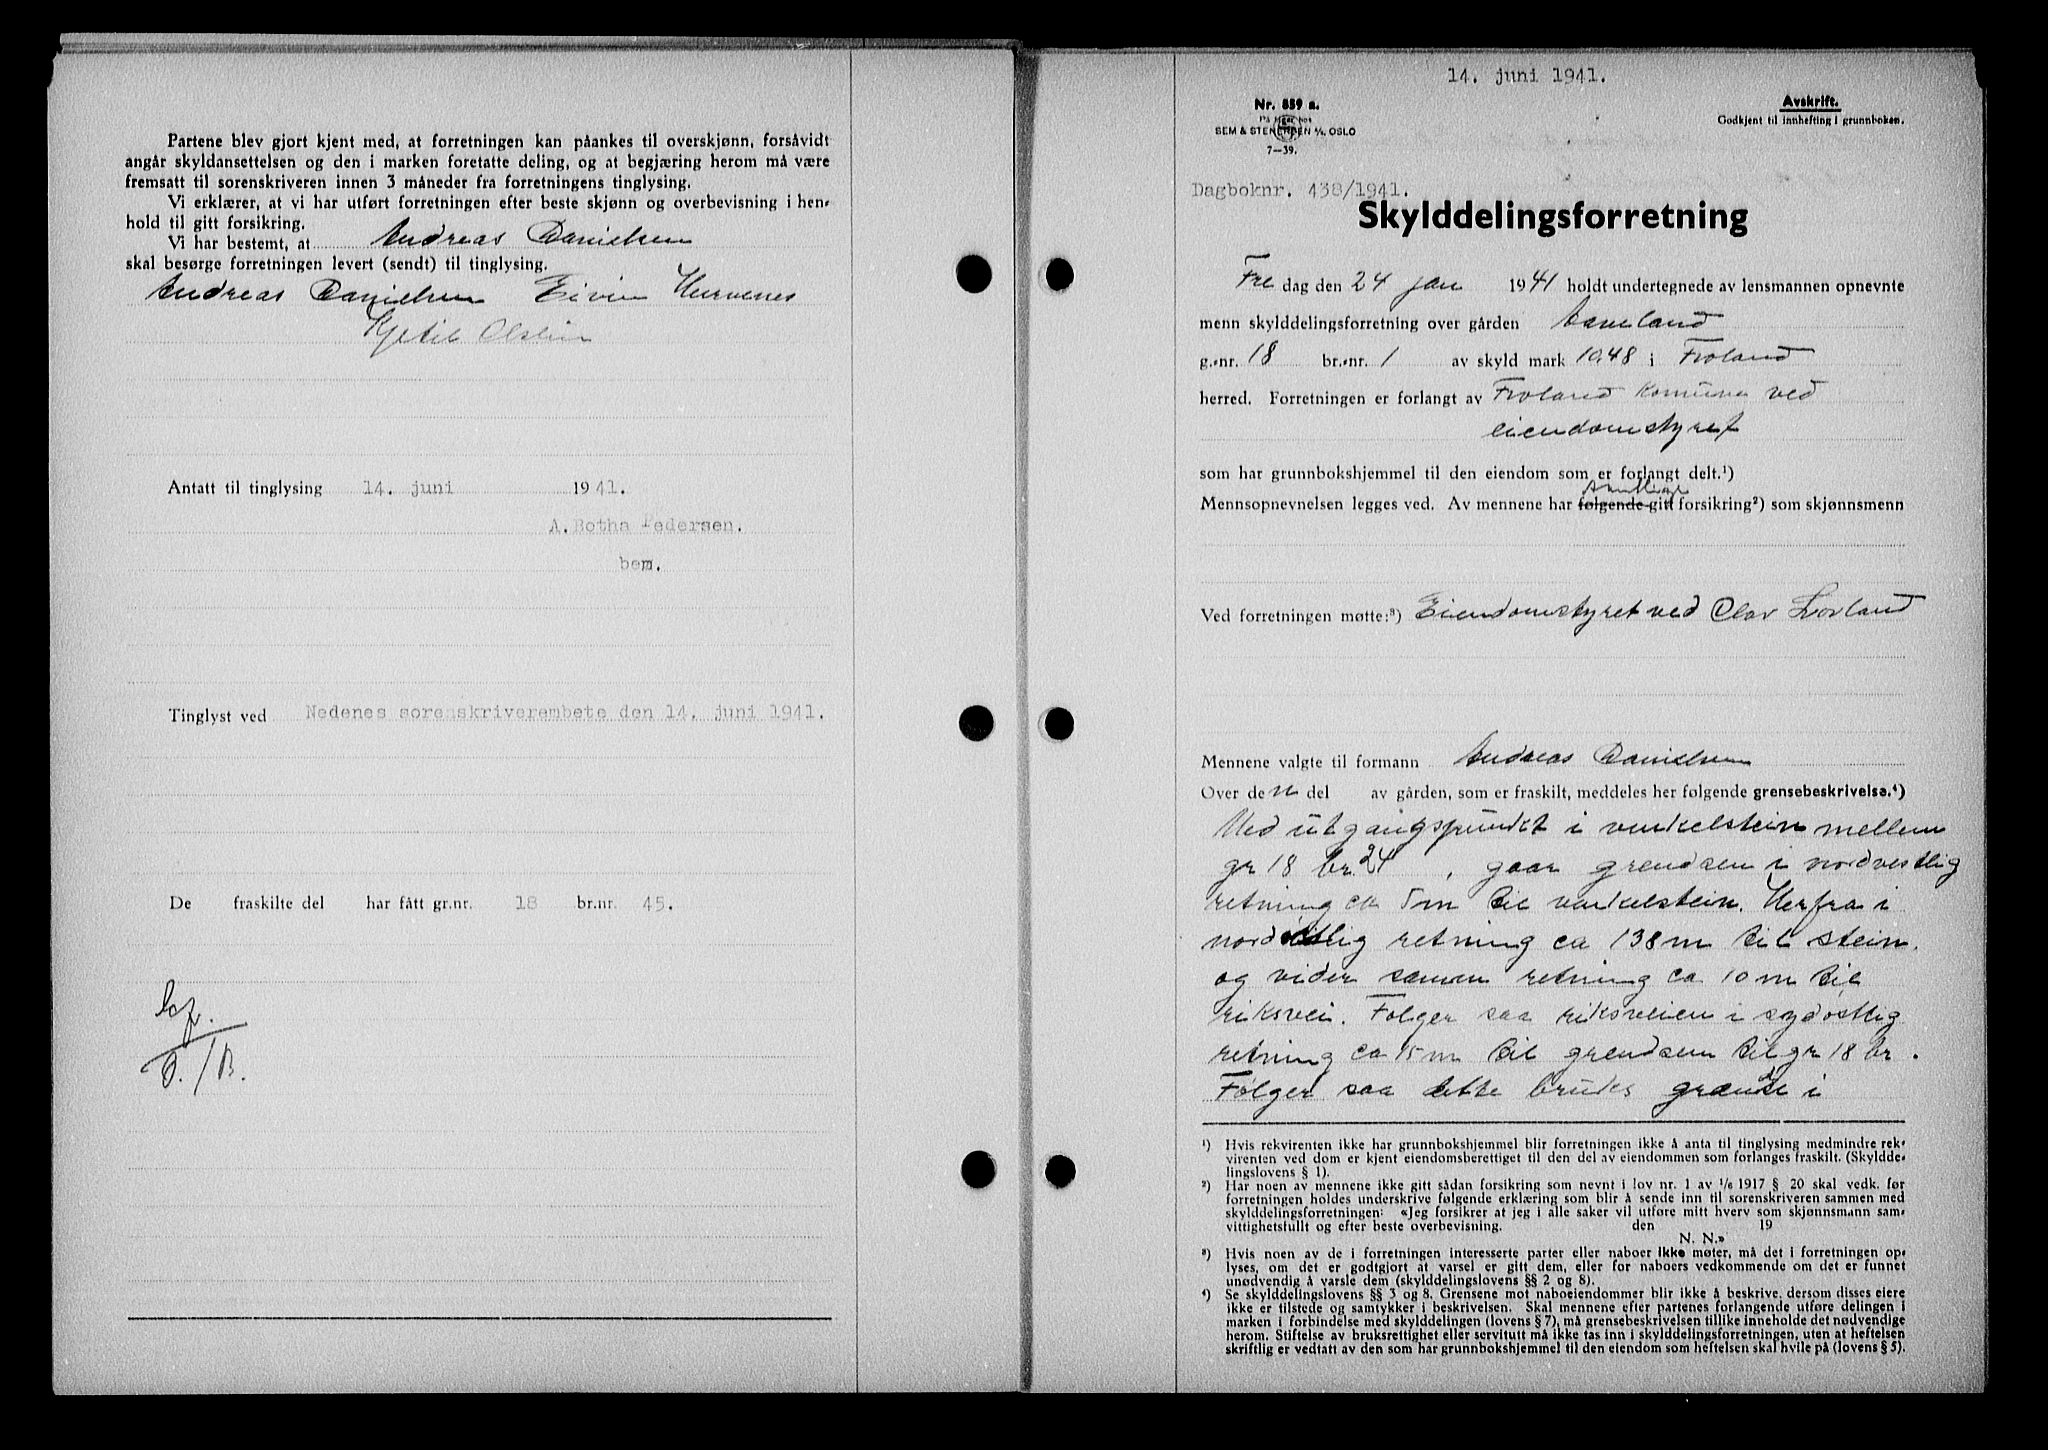 Partene blev gjort kjent med, at forretningen kan påankes til overskjønn, forsåvidt
angår skyldansettelsen og den i marken foretatte deling, og at begjæring herom må være
fremsatt til sorenskriveren innen 3 måneder fra forretningens tinglysing.
Vi erklærer, at vi har utført forretningen efter beste skjønn og overbevisning i hen-
hold til gitt forsikring.
Vi har bestemt, at Andreas Danielsen
skal besørge forretningen levert (sendt) til tinglysing.
Andreas Danielsen Eivin Hurvenes
Kjetil Olslin
Antatt til tinglysing 14. juni 1941.
A. Botha Pedersen.
bem.
Tinglyst ved Nedenes sorenskriverembete den 14. juni 1941.
De fraskilte del har fått gr.nr. 18 br.nr. 45.
O./B.
14. juni 1941.
Nr. 859 a.
På lager hos
SEM & STENERSEN A/S, OSLO
7—39.
Avskrift.
Godkjent til innhefting i grunnboken.
Dagboknr. 438/1941.
Skylddelingsforretning
Fre dag den 24 jan 1941 holdt undertegnede av lensmannen opnevnte
menn skylddelingsforretning over gården Aaneland
g.-nr. 18 br.-nr. 1 av skyld mark 10.48 i Froland
herred. Forretningen er forlangt av Froland Komune ved
eiendomstyret
som har grunnbokshjemmel til den eiendom som er forlangt delt.¹)
Samtlige
Mennsopnevnelsen legges ved. Av mennene har følgende gitt forsikring²) som skjønnsmenn
Ved forretningen møtte:³) Eiendomstyret ved Olav Lovland
Mennene valgte til formann Andreas Danielsen
Over den del av gården, som er fraskilt, meddeles her følgende grensebeskrivelse.⁴)
Med utgangspunkt i vinkelstein mellem
gr 18 br. 24, gaar grendsen i nordvestlig
retning ca 5 m til vinkelstein. Herfra i
nordostlig retning ca 138 m til stein.
og vider samme retning ca 10 m til
riksvei. Folger saa riksveien i sydostlig
retning ca 15 m til grendsen til gr 18 br.
Følger saa dette bruks grændse i
¹) Hvis rekvirenten ikke har grunnbokshjemmel blir forretningen ikke å anta til tinglysing medmindre rek-
virenten ved dom er kjent eiendomsberettiget til den del av eiendommen som forlanges fraskilt. (Skyldde-
lingslovens § 1).
²) Har noen av mennene ikke gitt sådan forsikring som nevnt i lov nr. 1 av 1/6 1917 § 20 skal vedk. før
forretningen holdes underskrive følgende erklæring som blir å sende inn til sorenskriveren sammen med
skylddelingsforretningen: «Jeg forsikrer at jeg i alle saker vil utføre mitt hverv som skjønnsmann sam-
vittighetsfullt og efter beste overbevisning. den 19
N. N.»
³) Hvis noen av de i forretningen interesserte parter eller naboer ikke møter, må det i forretningen op-
lyses, om det er godtgjort at varsel er gitt dem, eller for naboers vedkommende om det er funnet
unødvendig å varsle dem (skylddelingslovens §§ 2 og 8).
⁴) Se skylddelingslovens §§ 3 og 8. Grensene mot naboeiendommer blir ikke å beskrive, dersom disses eiere
ikke er tilstede og samtykker i beskrivelsen. Skal mennene efter partenes forlangende utføre delingen i
marken i forbindelse med skylddelingen (lovens § 7), må grensebeskrivelsen tillike inneholde det nødvendige
herom. Stiftelse av bruksrettighet eller servitutt må ikke tas inn i skylddelingsforretningen, uten at heftelsen
skriftlig er vedtatt av den som har grunnbokshjemmel til den eiendom som heftelsen skal hvile på (lovens § 5).